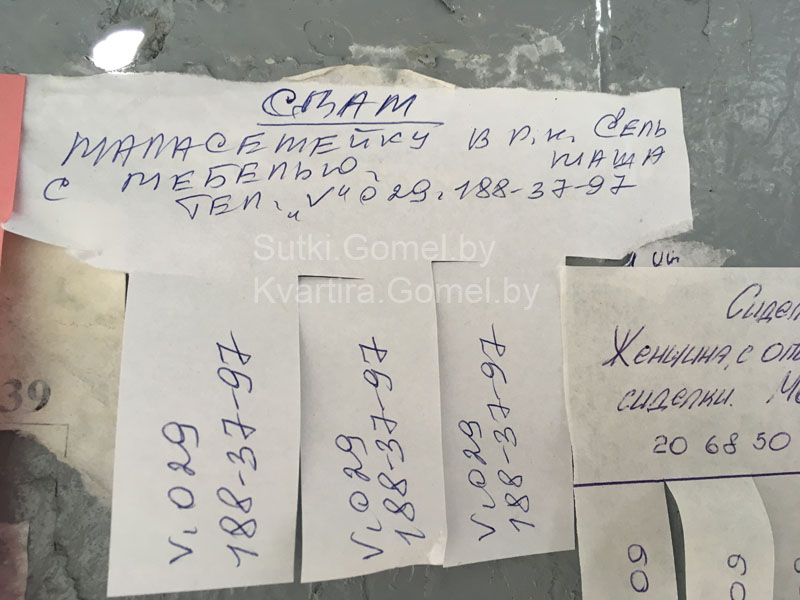 СДАМ
МАЛАСЕМЕЙКУ В Р.Н. СЕЛЬ
МАША
С МЕБЕЛЬЮ.
ТЕЛ. „V“ 029.188-37-97
Sutki.Gomel.by
Kvartira.Gomel.by
V.029
188-37-97
V.029
188-37-97
V.029
188-37-97
39
Женщина, с
сиделки.
20 68 50
09
09